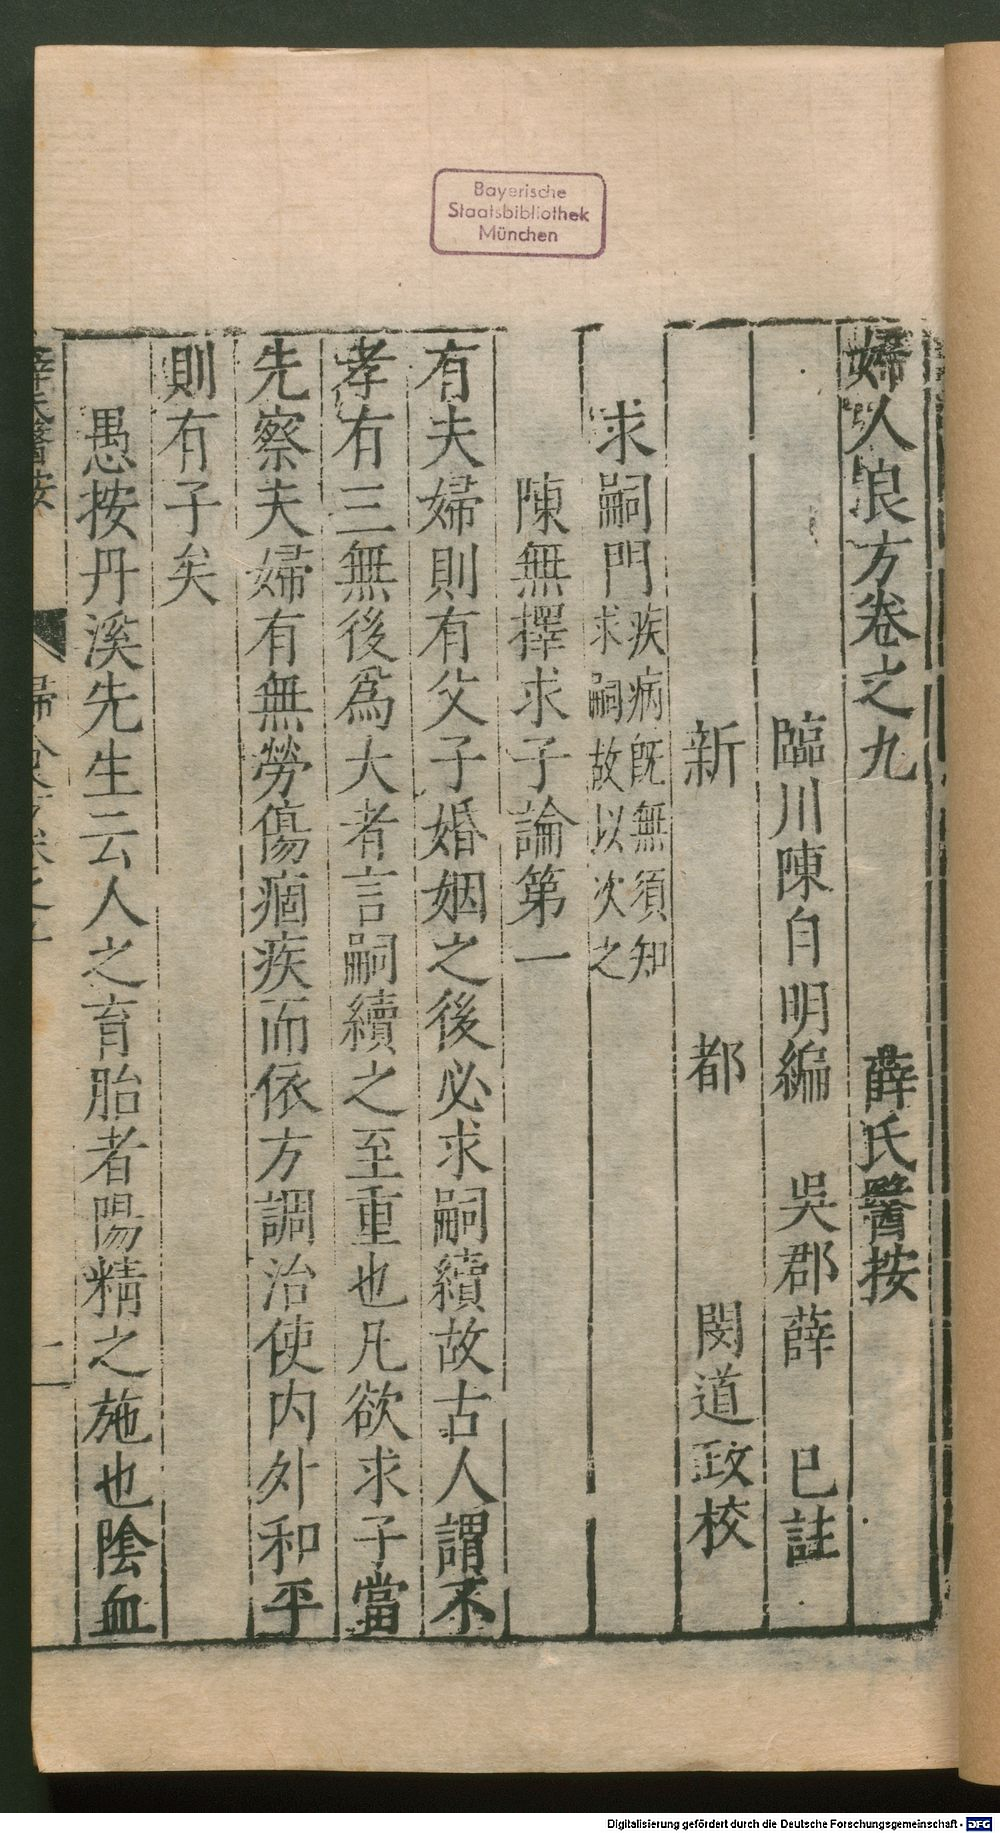 Bayerische
Staatsbibliothek
München
婦人良方卷之九 薛氏醫按
臨川陳自明編 吳郡薛 已註
新 都 閔道政校
求嗣門 疾病旣無須知
求嗣故以次之
陳無擇求子論第一
有夫婦則有父子婚姻之後必求嗣續故古人謂不
孝有三無後爲大者言嗣續之至重也凡欲求子當
先察夫婦有無勞傷痼疾而依方調治使内外和平
則有子矣
愚按丹溪先生云人之育胎者陽精之施也陰血
Digitalisierung gefördert durch die Deutsche Forschungsgemeinschaft - DFG